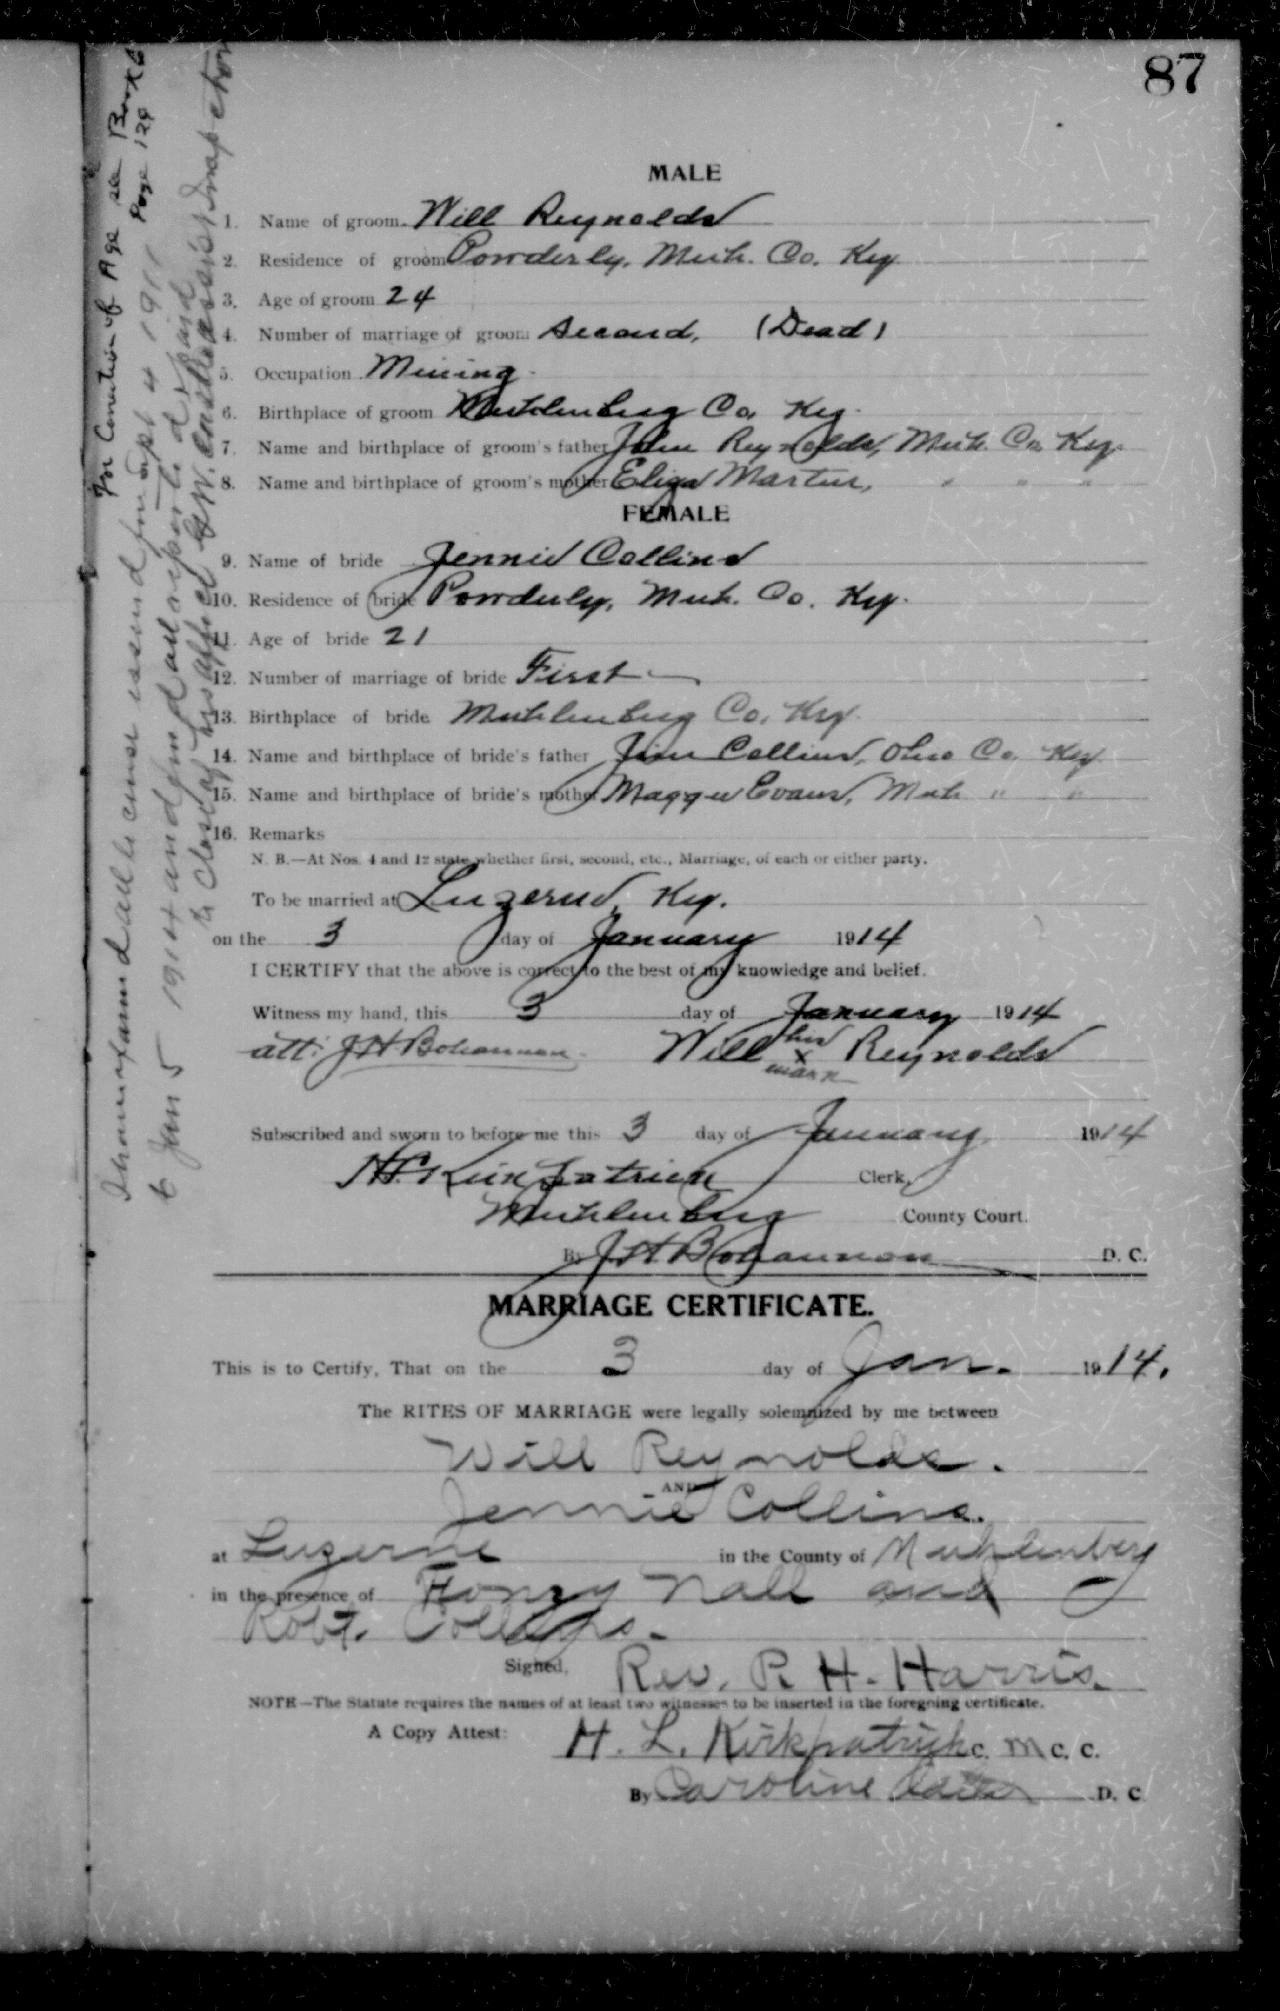 87
MALE
1. Name of groom Will Reynolds
2. Residence of groom Powderly, Muh. Co. Ky.
3. Age of groom 24
4. Number of marriage of groom Second, (Dead)
5. Occupation Mining
6. Birthplace of groom Muhlenberg Co, Ky.
7. Name and birthplace of groom's father John Reynolds, Muh. Co. Ky.
8. Name and birthplace of groom's mother Eliza Martin, " " "
FEMALE
9. Name of bride Jennie Collins
10. Residence of bride Powderly, Muh. Co. Ky.
11. Age of bride 21
12. Number of marriage of bride First
13. Birthplace of bride Muhlenberg Co, Ky.
14. Name and birthplace of bride's father Jim Collins, Ohio Co. Ky
15. Name and birthplace of bride's mother Maggie Evans, Muh " "
16. Remarks
N. B.—At Nos. 4 and 12 state whether first, second, etc., Marriage, of each or either party.
To be married at Luzerne, Ky.
on the 3 day of January 1914
I CERTIFY that the above is correct to the best of my knowledge and belief.
Witness my hand, this 3 day of January 1914
att: J H Bohannon Will his x mark Reynolds
Subscribed and sworn to before me this 3 day of January 1914
Kirkpatrick Clerk,
Muhlenberg County Court.
By J H Bohannon D. C.
MARRIAGE CERTIFICATE.
This is to Certify, That on the 3 day of Jan. 1914.
The RITES OF MARRIAGE were legally solemnized by me between
Will Reynolds.
AND
Jennie Collins.
at Luzerne in the County of Muhlenberg
in the presence of Henry Nall and
Robt. Collins.
Signed, Rev. R. H. Harris.
NOTE—The Statute requires the names of at least two witnesses to be inserted in the foregoing certificate.
A Copy Attest: H. L. Kirkpatrick C. M C. C.
By Caroline D. C.
For Correction of Age see Book 6
Page 129
I have examined all license issued from Sept 4 1911
to Jan 5 1914 and find all reported & paid
to close of his office